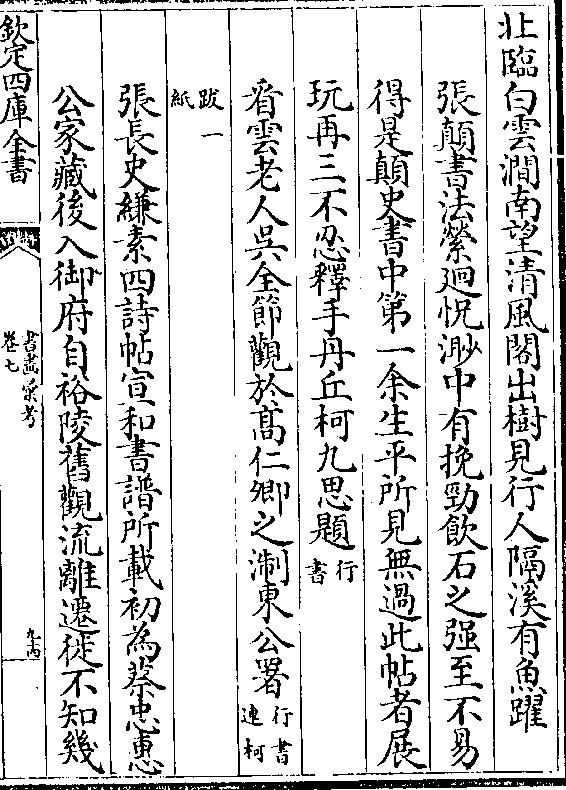 北臨白雲澗南望清風閣出樹見行人隔溪有魚躍
張顛書法縈廻怳渺中有挽勁飲石之强至不易
得是顛史書中第一余生平所見無過此帖者展
玩再三不忍釋手丹丘柯九思題行書
看雲老人吳全節觀於髙仁卿之淛東公署行書連柯
跋一紙
張長史縑素四詩帖宣和書譜所載初為蔡忠惠
公家藏後入御府自裕陵舊觀流離遷徙不知幾
欽定四庫全書
書畫彚考
卷七
九十四